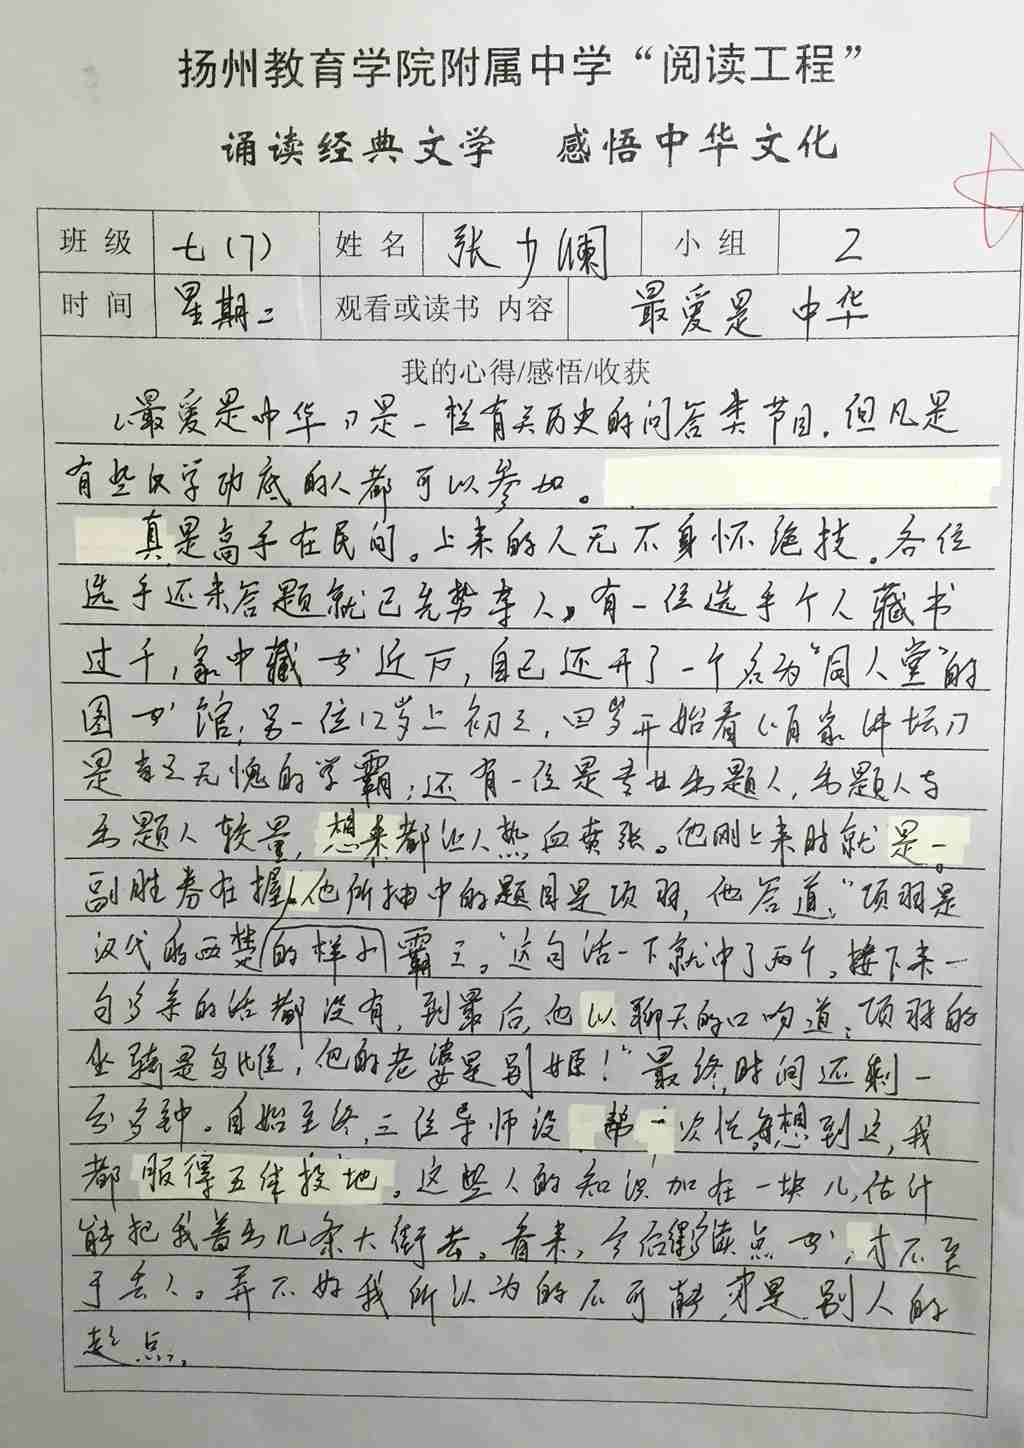 扬州教育学院附属中学“阅读工程”
诵读经典文学 感悟中华文化
班级 七(7) 姓名 张少澜 小组 2
时间 星期二 观看或读书 内容 最爱是中华
我的心得/感悟/收获
《最爱是中华》是一栏有关历史的问答类节目,但凡是
有些汉学功底的人都可以参加。
真是高手在民间。上来的人无不身怀绝技。各位
选手还未答题就已先势夺人。有一位选手个人藏书
过千,家中藏书近万,自己还开了一个名为“同人堂”的
图书馆;另一位12岁上初三,四岁开始看《百家讲坛》
是当之无愧的学霸;还有一位是专业出题人,出题人与
出题人较量,想来都让人热血贲张。他刚上来时就是一
副胜券在握的样小。他所抽中的题目是项羽,他答道:“项羽是
汉代的西楚霸王。”这句话一下就中了两个,接下来一
句多余的话都没有,到最后,他以聊天的口吻道:项羽的
坐骑是乌骓,他的老婆是别姬!”最终,时间还剩一
分多钟。自始至终,三位导师没帮一次忙。每想到这,我
都服得五体投地。这些人的知识加在一块儿,估计
能把我普出几条大街去。看来,今后得多读点书,才不至
于丢人。弄不好我所认为的不可能,才是别人的
起点。